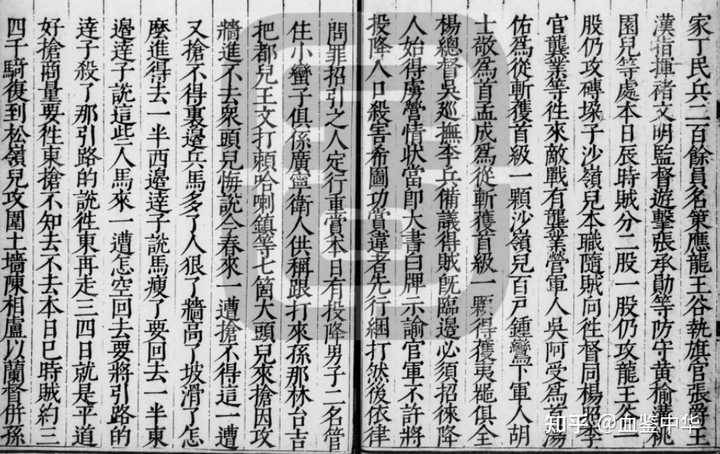 家丁民兵二百餘員名策應龍王谷執旗官張爵王
漢指揮褚文明監督遊擊張承勛等防守黃榆黃桃
園兒等處本日辰時賊分二股一股仍攻龍王谷二
股仍攻磚垛子沙嶺兒本職隨賊向徃督同楊照李
官龔業等徃來敵戰有龔業營軍人吳阿受為首湯
佑為從斬獲首級一顆沙嶺兒百戶鍾鸞下軍人胡
士敖為首孟成為從斬獲首級一顆得獲夷器俱全
楊總督吳廵撫李兵備議得賊旣臨邊必須招徠降
人始得虜營情狀當即大書白牌示諭官軍不許將
投降人口殺害希圖功賞違者先行綑打然後依律
問罪招引之人定行重賞本日有投降男子二名管
住小蠻子俱係廣寧衛人供稱跟打來孫那林台吉
把都兒王文打頼哈喇鎮等七箇大頭兒來搶因攻
牆進不去衆頭兒悔說今春來一遭搶不得這一遭
又搶不得裏邊兵馬多了人狠了牆高了坡滑了怎
麼進得去一半西邊達子說馬瘦了要回去一半東
邊達子說這些人馬來一遭怎空回去要將引路的
達子殺了那引路的說徃東再走三四日就是平道
好搶商量要徃東搶不知去不去本日巳時賊約三
四千騎復到松嶺兒攻圍土墻陳相盧以蘭督併孫
知乎 @血鉴中华